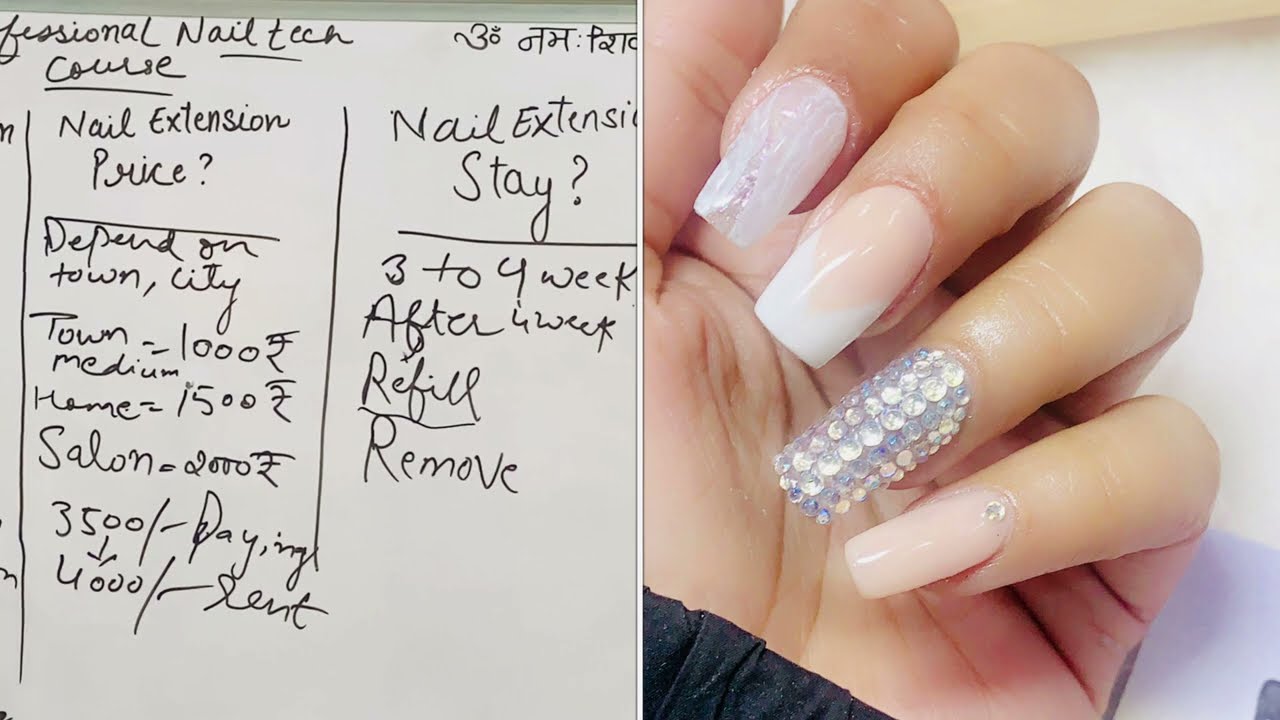 ofessional Nail tech
Course
ॐ नमः शिव
Nail Extension
Price?
Depend on
town, city
Town
medium = 1000₹
Home = 1500₹
Salon = 2000₹
3500/- Paying
4000/- Rent
Nail Extensio
Stay?
3 to 4 week
After 4 week
Refill
Remove